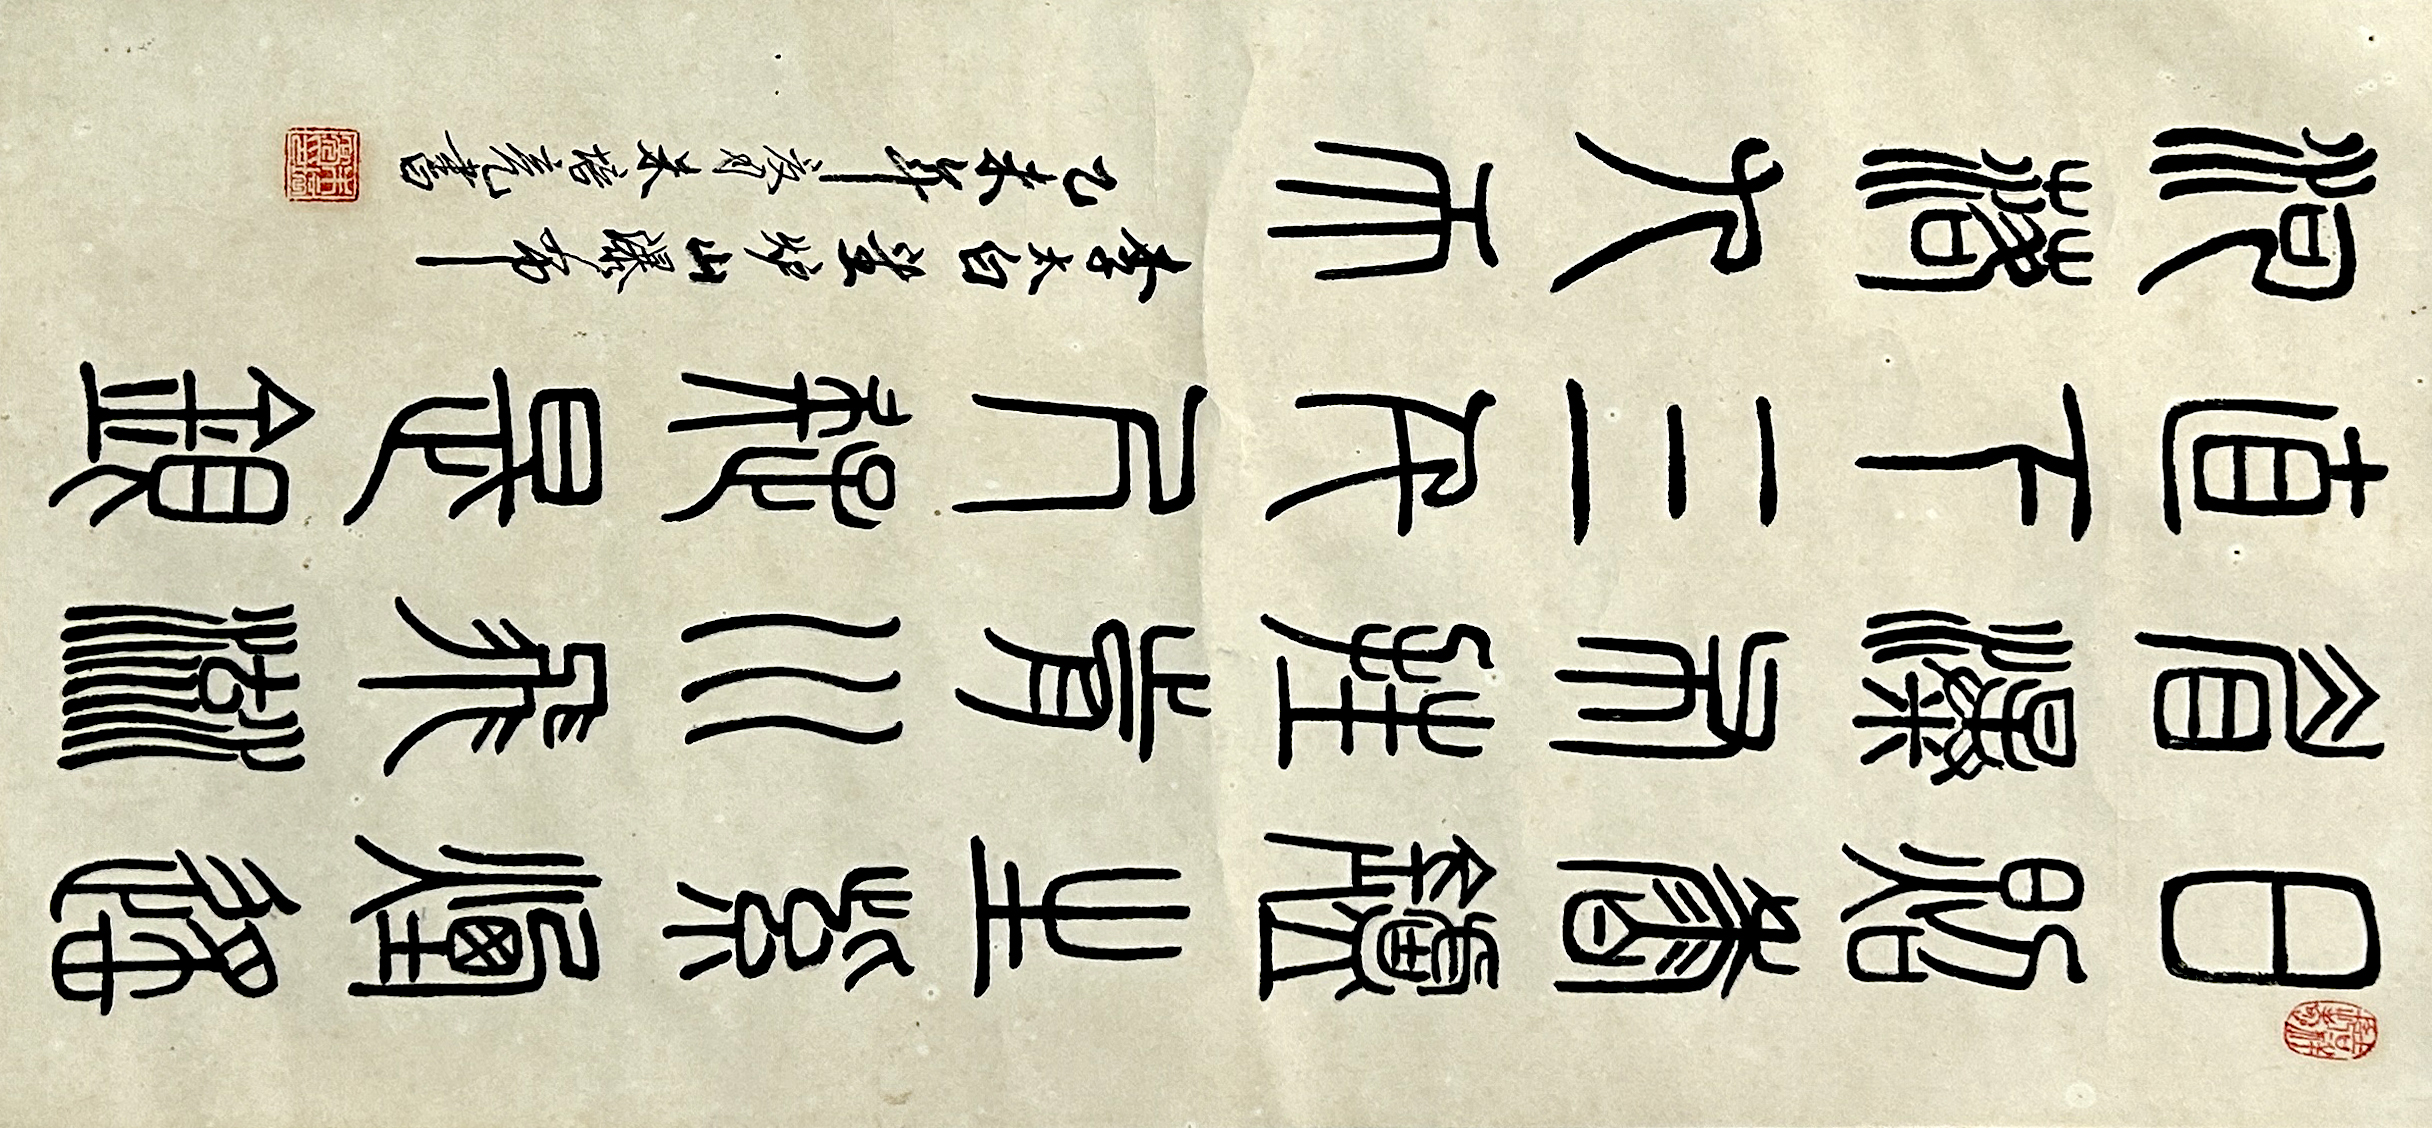 日照香爐生紫煙遙
看瀑布挂前川飛流
直下三千尺疑是銀
河落九天
李太白望炉山瀑布
乙未年 書